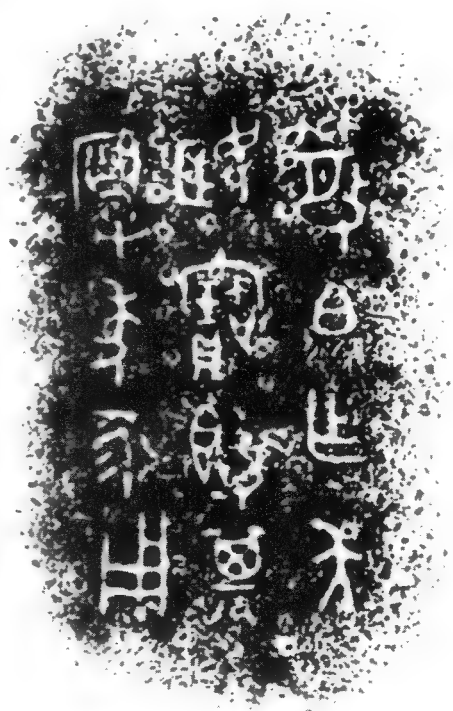 白乍
姬寶𣪘其
萬年永用